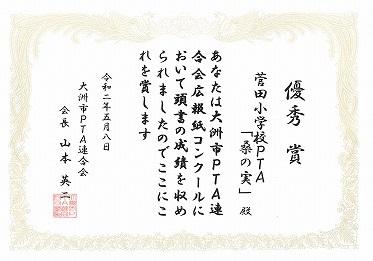 優秀賞
菅田小学校PTA
「桑の実」殿
あなたは大洲市PTA連
合会広報紙コンクールに
おいて頭書の成績を収め
られましたのでここにこ
れを賞します
令和二年五月八日
大洲市PTA連合会
会長 山本英二